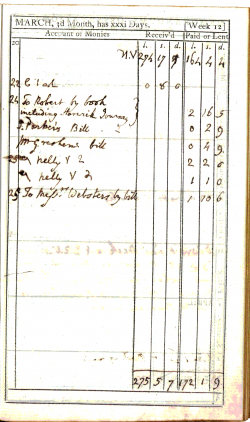 MARCH, 3d Month, has xxxi Days. [Week 12]
Account of Monies Receiv'd Paid or Lent
l. s. d. l. s. d.
20 274 17 164 4 4
22 Cash 0 8 0
24 To Robert by book
including Journey 2 16 5
Bill 0 2 9
bill 0 4 9
nelly 2 2 0
nelly 1 1 0
25 To Mess. Websters by bill 1 10 6
275 5 7 172 1 9